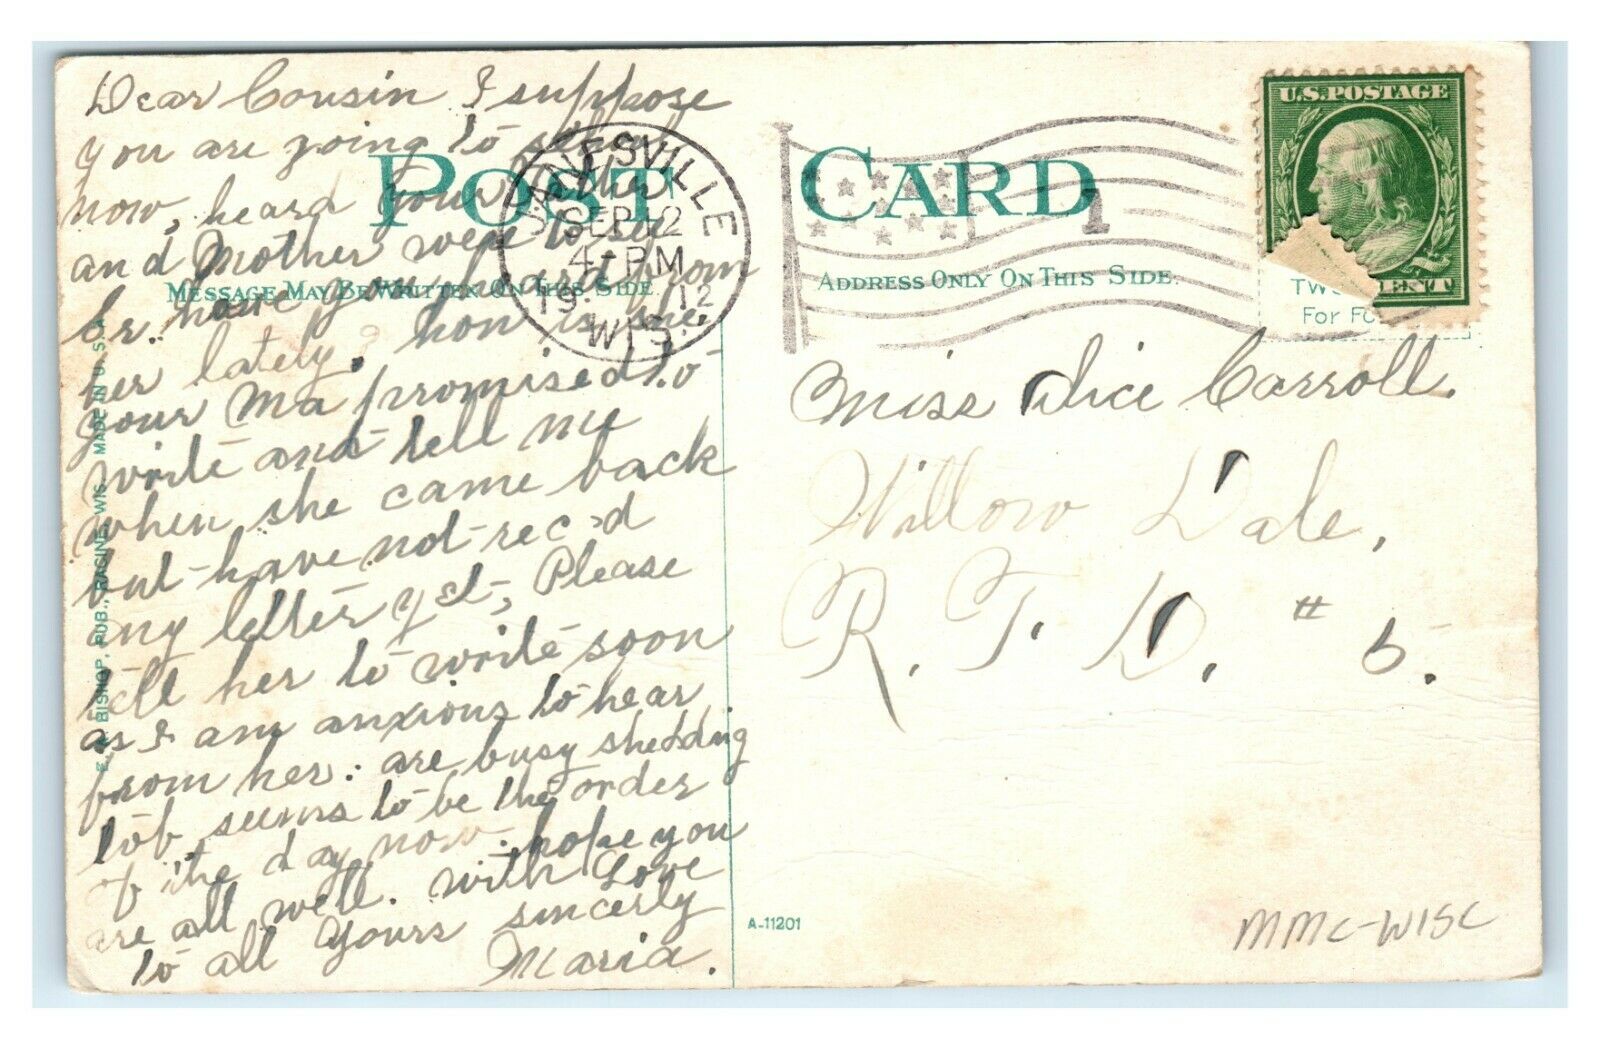 Dear Cousin I suppose
you are going to school
now, heard your Father
and Mother were to see
Gr. have you heard from
her lately. how is she,
your Ma promised to
write and tell me
when she came back
but have not rec'd
any letter yet, Please
tell her to write soon
as I am anxious to hear
from her. are busy shedding
tob. seems to be the order
of the day now. hope you
are all well. with Love
to all Yours sincerly
Maria.
POST CARD
MESSAGE MAY BE WRITTEN ON THIS SIDE
ADDRESS ONLY ON THIS SIDE.
JANESVILLE
SEP 12
4-PM
1912
WIS.
1
U.S. POSTAGE
CENT
TWO
For FO
Miss Alice Carroll.
Willow Dale,
R. F. D. # 5.
E. A. BISHOP, PUB., RACINE, WIS. MADE IN U. S. A.
A-11201
MMC-WISC